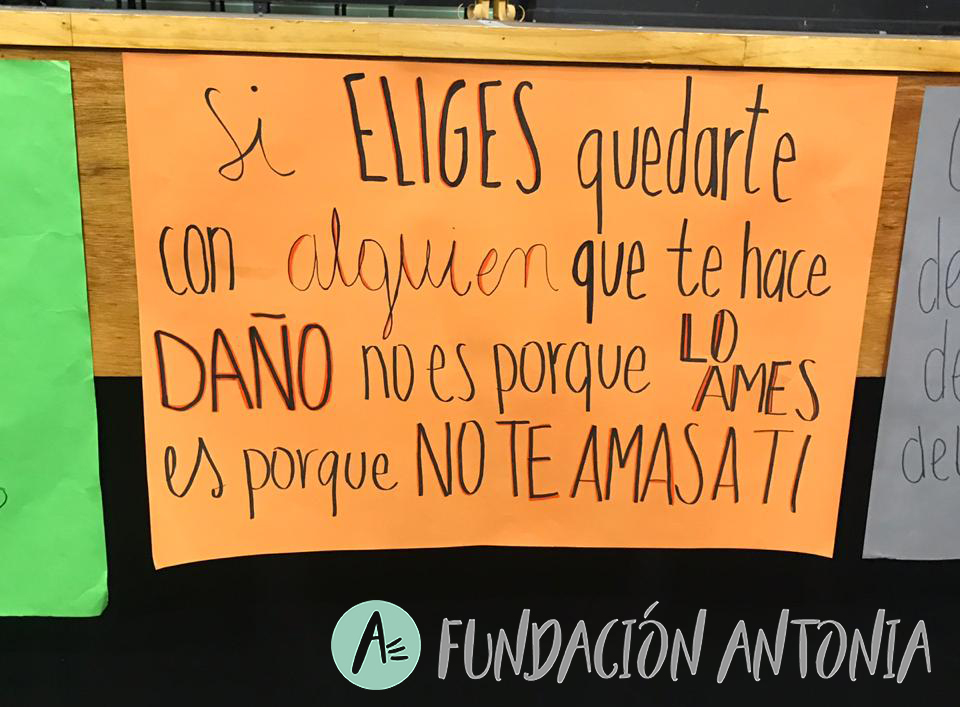 Si ELIGES quedarte
con alguien que te hace
DAÑO no es porque LO AMES
es porque NO TE AMAS A TI
de
de
del
A
FUNDACIÓN ANTONIA